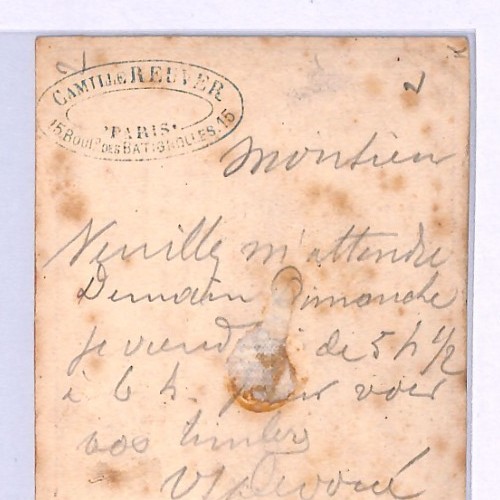 CAMILLE REUVER
PARIS
15, BOUL.D DES BATIGNOLLES, 15
Monsieur
Veuillez m'attendre
Demain Dimanche
je viend de 5 h 1/2
à 6 h. pour voir
vos timbres
dévoué